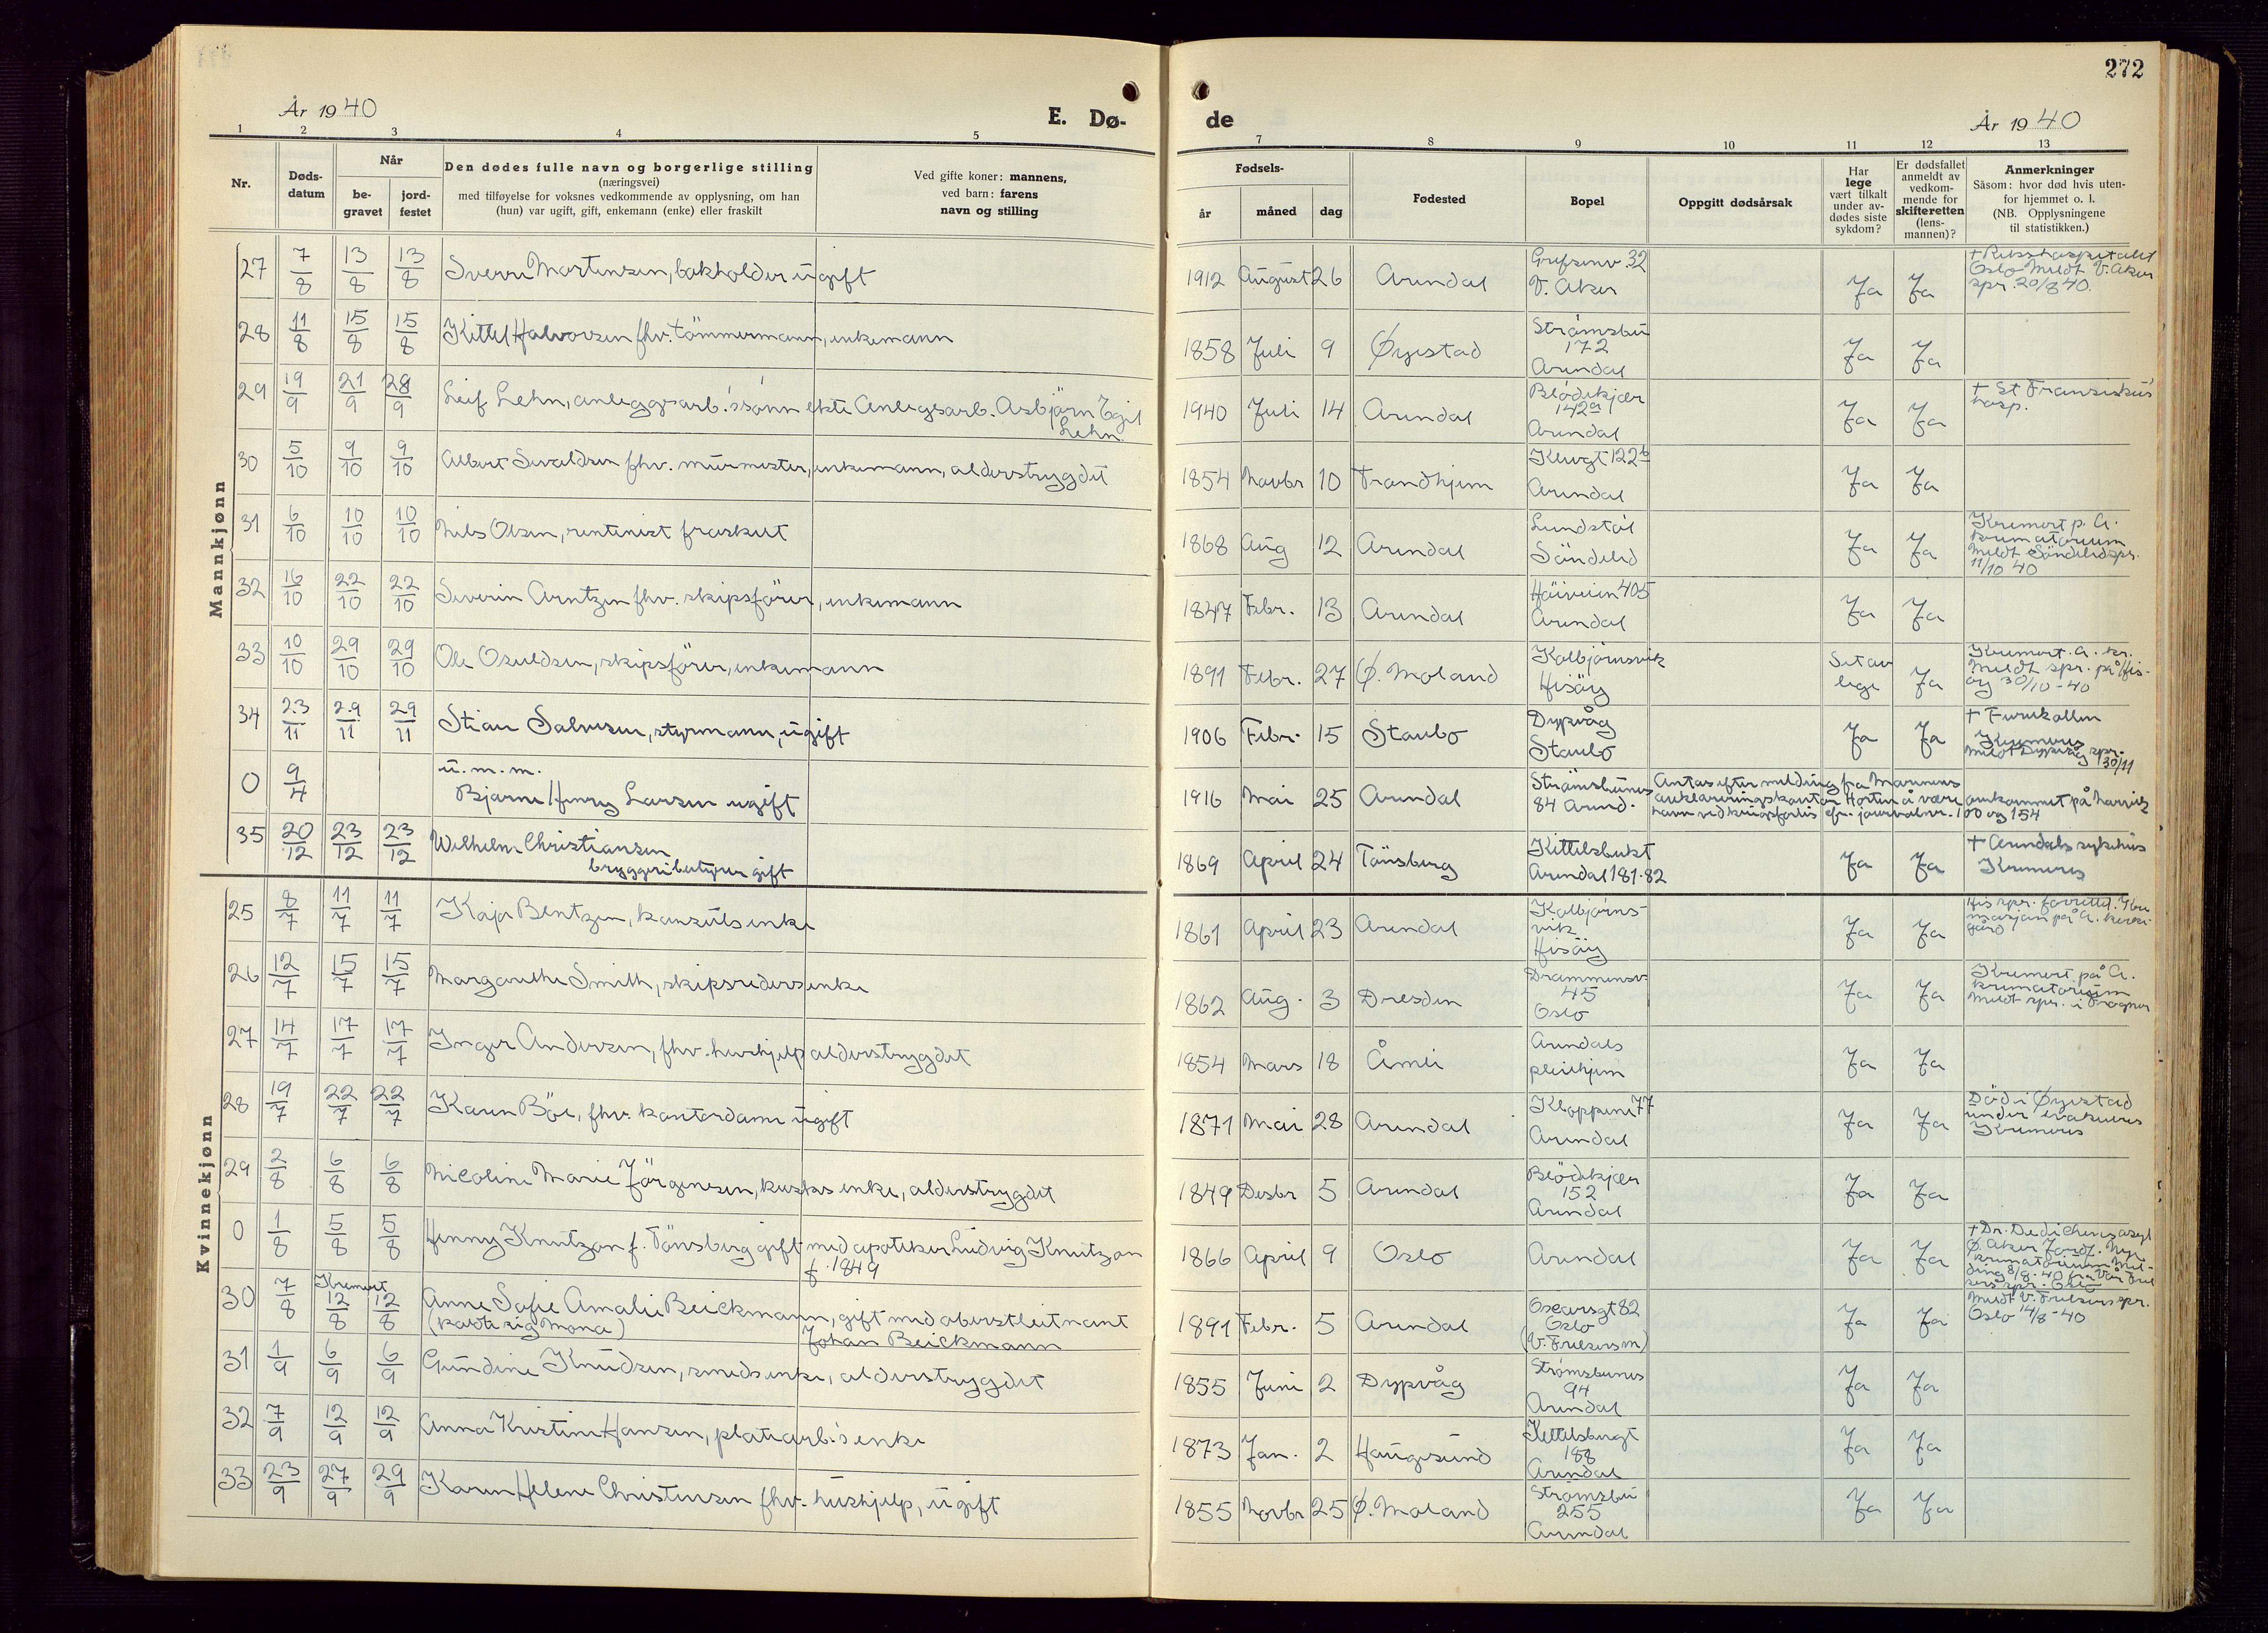 272
År 1940
E. Dø-
de
År 1940
1 2 3 4 5 7 8 9 10 11 12 13
Nr.
Døds-
datum
Når
be-
gravet
jord-
festet
Den dødes fulle navn og borgerlige stilling
(næringsvei)
med tilføyelse for voksnes vedkommende av opplysning, om han
(hun) var ugift, gift, enkemann (enke) eller fraskilt
Ved gifte koner: mannens,
ved barn: farens
navn og stilling
Fødsels-
år
måned
dag
Fødested
Bopel
Oppgitt dødsårsak
Har
lege
vært tilkalt
under av-
dødes siste
sykdom?
Er dødsfallet
anmeldt av
vedkom-
mende for
skifteretten
(lens-
mannen)?
Anmerkninger
Såsom: hvor død hvis uten-
for hjemmet o. l.
(NB. Opplysningene
til statistikken.)
Mannkjønn
27 7/8 13/8 13/8 Sverre Martinsen, bokholder ugift 1912 August 26 Arendal Grefsenv. 32 V. Aker Ja Ja + Rikshospitalet Oslo Meldt V. Aker spr. 20/8 40.
28 11/8 15/8 15/8 Kittel Halvorsen fhv. tömmermann, enkemann 1858 Juli 9 Øyestad Strømsbu 172 Arendal Ja Ja
29 19/9 21/9 28/9 Leif Lehn, anleggsarb.'s sønn ekte Anlegsarb. Asbjørn Egil Lehn. 1940 Juli 14 Arendal Blödekjær 142a Arendal Ja Ja + St Fransiskus' hosp.
30 5/10 9/10 9/10 Albert Sivaldsen fhv. murmester, enkemann, alderstrygdet 1854 Novbr 10 Trondhjem Klevgt 122b Arendal Ja Ja
31 6/10 10/10 10/10 Nils Olsen, rentenist fraskilt 1868 Aug 12 Arendal Lundstøl Söndeled Ja Ja Kremert p. A. krematorium Meldt Söndeled spr. 11/10 40
32 16/10 22/10 22/10 Severin Arntzen fhv. skipsförer, enkemann 1847 Febr. 13 Arendal Höiveien 405 Arendal Ja Ja
33 10/10 29/10 29/10 Ole Osuldsen, skipsförer, enkemann 1891 Febr. 27 Ø. Moland Kolbjörnsvik Hisöy Set av lege Ja Kremert. A. kr. Meldt spr. på His-öy 30/10 - 40
34 23/11 29/11 29/11 Stian Salvesen, styrmann, ugift 1906 Febr. 15 Staubo Dypvåg Staubo Ja Ja + Furukollen Kremeres Meldt Dypvåg spr. 30/11
0 9/4 u. m. m. Bjarne Henry Larsen ugift 1916 Mai 25 Arendal Strömsbunes 84 Arend. Antas efter melding fra Marinens avklareringskontor Horten å være omkommet på Narvik havn ved krigsforlis cfr. journalnr. 100 og 154
35 20/12 23/12 23/12 Wilhelm Christiansen bryggeribestyrer gift 1869 April 24 Tönsberg Kittelsbukt Arendal 181-82 Ja Ja + Arendals sykehus Kremeres
Kvinnekjønn
25 8/7 11/7 11/7 Kaja Bentzen, konsuls enke 1861 April 23 Arendal Kolbjörns-vik Hisöy Ja Ja His spr. forrettet. Kre masjon på A. kirke-gård
26 12/7 15/7 15/7 Margarethe Smith, skipsreders enke 1862 Aug. 3 Dresden Drammensv. 45 Oslo Ja Ja Kremert på A. krematorium Meldt spr. i Frogner
27 14/7 17/7 17/7 Inger Andersen, fhv. hushjelp alderstrygdet 1854 Mars 18 Åmli Arendals pleiehjem Ja Ja
28 19/7 22/7 22/7 Karen Böe, fhv. kontordame ugift 1871 Mai 28 Arendal Kloppene 77 Arendal Ja Ja Död i Øyestad under evakueres Kremeres
29 2/8 6/8 6/8 Nicoline Marie Jörgensen, kusks enke, alderstrygdet 1849 Desbr 5 Arendal Blödekjær 152 Arendal Ja Ja
0 1/8 5/8 5/8 Henny Knutzon f. Tönsberg gift med apoteker Ludvig Knutzon f. 1849 1866 April 9 Oslo Arendal Ja Ja + Dr. Dedichens asyl Ø. Aker Jordf. Nye krematorium Mel-ding 8/8 - 40 fra Vår Frel sers spr. Oslo
30 7/8 Kremert 12/8 12/8 Anne Sofie Amalie Beickmann, gift med oberstleitnant (kaldte sig Mona) Johan Beickmann 1891 Febr. 5 Arendal Oscarsgt 82 Oslo (V. Frelsers m) Ja Ja Meldt V. Frelsers spr. Oslo 14/8 - 40
31 1/9 6/9 6/9 Gundine Knudsen, smeds enke, alderstrygdet 1855 Juni 2 Dypvåg Strømsbunes 94 Arendal Ja Ja
32 7/9 12/9 12/9 Anna Kristine Hansen, platearb.'s enke 1873 Jan. 2 Haugesund Kittelsbugt 188 Arendal Ja Ja
33 23/9 27/9 29/9 Karen Helene Christensen fhv. hushjelp, ugift 1855 Novbr 25 Ø. Moland Strømsbu 255 Arendal Ja Ja